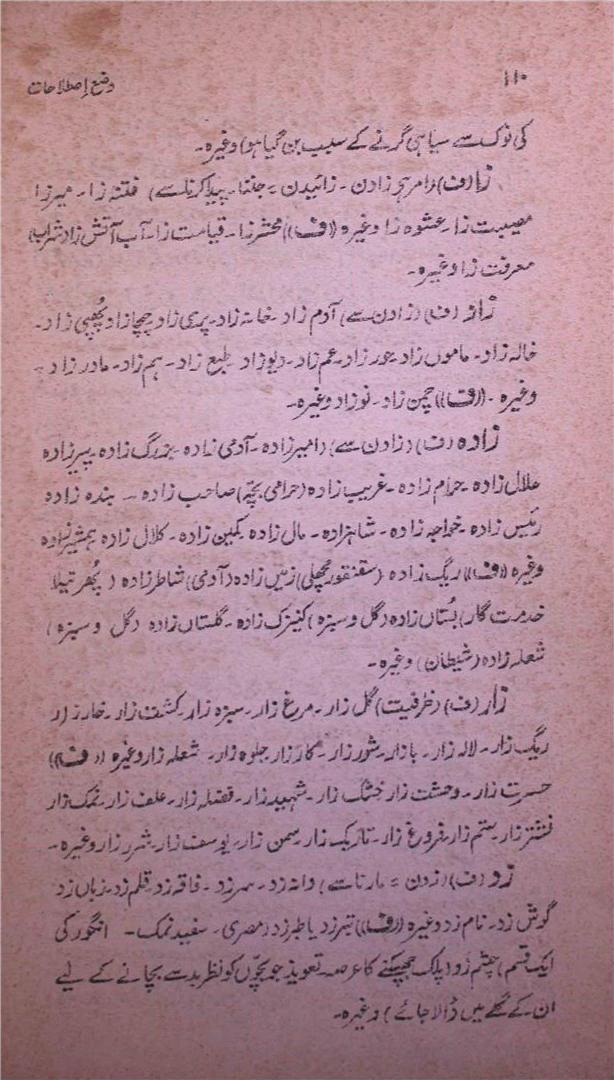 ۱۱۰
وضع اصطلاحات
کی نوک سے سیاہی گرنے کے سبب بن گیا ہو) وغیرہ۔
زا (ف) (امر ہر زادن۔ زائیدن = جننا۔ پیدا کرنا سے) فتنہ زا۔ میرزا
مصیبت زا۔ عشوہ زا وغیرہ ((ف)) محشر زا۔ قیامت زا۔ آب آتش زا (شراب)
معرفت زا وغیرہ۔
زاد (ف) (زادن سے) آدم زاد۔ خانہ زاد۔ پری زاد۔ چچا زاد پُھپی زاد۔
خالہ زاد۔ ماموں زاد۔ حور زاد۔ عم زاد۔ دیوزاد طبع زاد۔ ہم زاد۔ مادر زاد۔
وغیرہ۔ ((ف)) چمن زاد۔ نوزاد وغیرہ۔
زادہ (ف) (زادن سے) امیرزادہ۔ آدمی زادہ۔ بزرگ زادہ۔ پیرزادہ
حلال زادہ۔ حرام زادہ۔ غریب زادہ (حرامی بچّہ) صاحب زادہ۔ بندہ زادہ
رئیس زادہ۔ خواجہ زادہ۔ شاہزادہ۔ مال زادہ۔ کمین زادہ۔ کلال زادہ ہمشیرزادہ
وغیرہ ((ف)) ریگ زادہ (سقنقور مچھلی) زمیں زادہ (آدمی) شاطر زادہ (پُھرتیلا
خدمت گار) بُستاں زادہ (گل و سبزہ) کنیزک زادہ۔ گلستاں زادہ (گل و سبزہ)
شعلہ زادہ (شیطان) وغیرہ۔
زار (ف) (ظرفیت) گل زار۔ مرغ زار۔ سبزہ زار۔ کشف زار۔ خارزار
ریگ زار۔ لالہ زار۔ بازار۔ شور زار۔ کارزار جلوہ زار۔ شعلہ زار وغیرہ ((ف))
حسرت زار۔ وحشت زار خشک زار۔ شہید زار۔ فضلہ زار۔ علف زار۔ نمک زار
نشتر زار۔ ستم زار۔ فروغ زار۔ تاریک زار۔ سمن زار۔ یوسف زار۔ شرر زار وغیرہ۔
زد (ف) (زدن = مارنا سے) دانہ زد۔ سرزد۔ فاقہ زد قلم زد۔ زباں زد
گوش زد۔ نام زد وغیرہ ((ف)) تبرزد یا طبرزد (مصری۔ سفید نمک۔ انگور کی
ایک قسم) چشم زد (پلک جھپکنے کا عرصہ۔ تعویذ جو بچّوں کو نظر بد سے بچانے کے لیے
ان کے گلے میں ڈالا جائے) وغیرہ۔